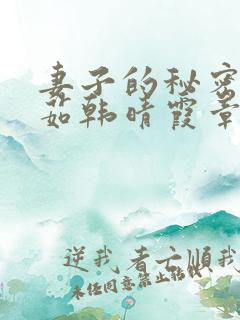 妻子的秘密
茹韩晴霞章
逆我者亡顺我
未经同意禁止转载